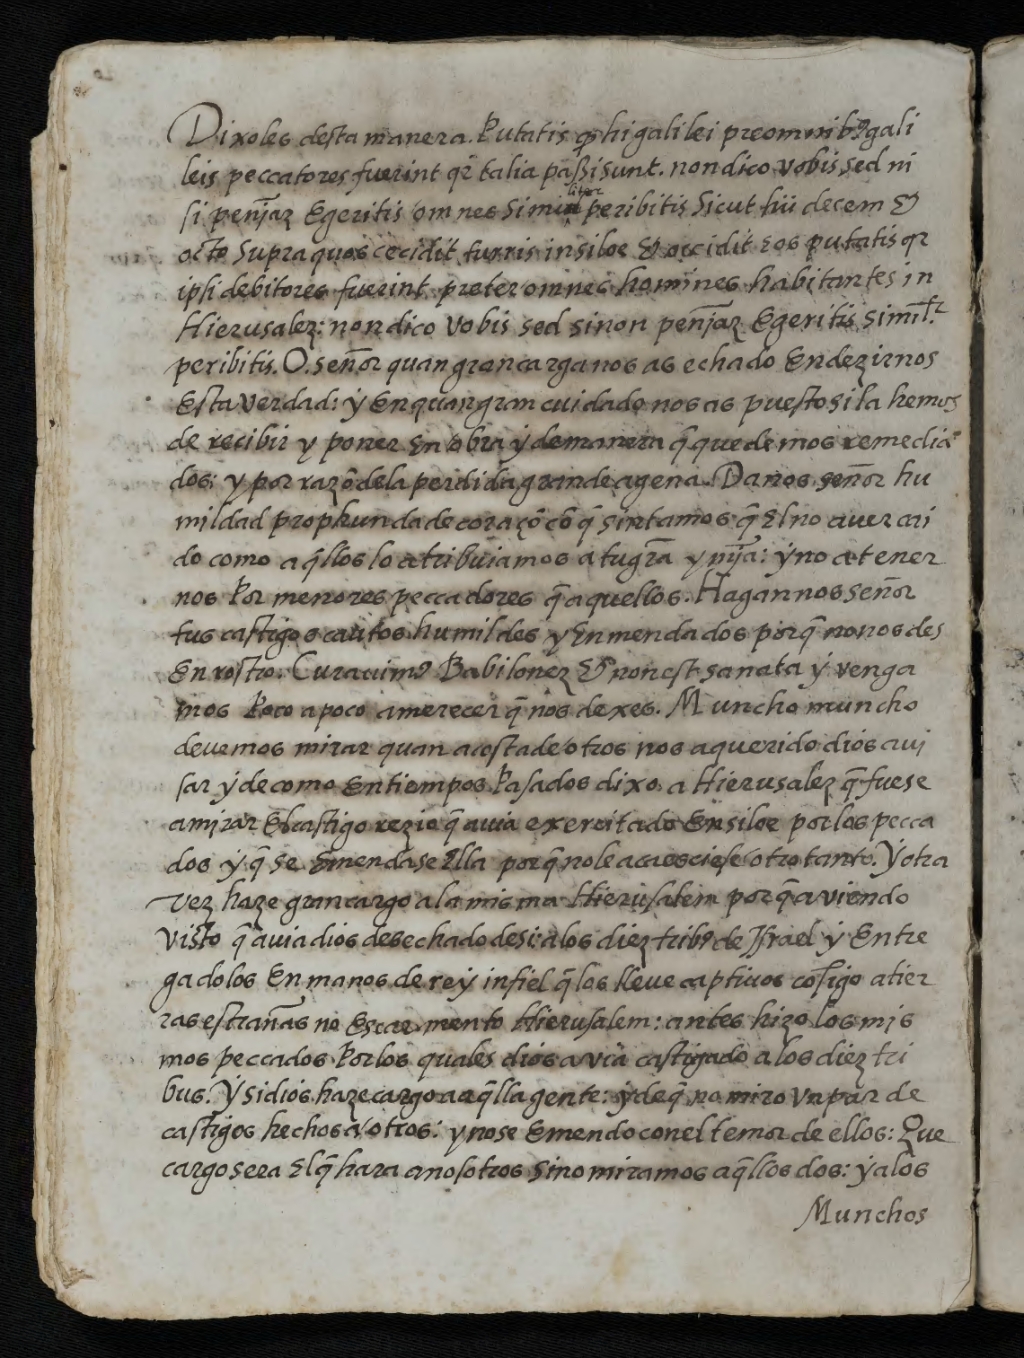 Dixoles desta manera. Putatis qͥ hi galilei pre omnibꝰ gali
leis peccatores fuerint qr̃ talia paßi sunt. non dico vobis, sed ni
si penr̃iaꝫ Egeritis omnes Similiter peribitis Sicut hii decem &
octo Supra quos cecidit turris in siloe & occidit eos putatis qr
ipsi debitores fuerint preter omnes homines habitantes in
Hierusaleꝫ: non dico vobis sed si non penr̃iaꝫ Egeritis simil̃r
peribitis. O. señor quan gran carga nos as echado En dezirnos
Esta verdad: ÿ En quan gran cuidado nos as puesto si la hemos
de recibir y poner En obra ÿ de manera q̃ quedemos remedia
dos: y por razõ de la perdida grande agena. Danos señor hu
mildad prophunda de coraçõ cõ q̃ sintamos q̃ El no aver cai
do como aq̃llos lo atribuiamos a tu gr̃a y mr̃ia: ÿ no a tener
nos Por menores peccadores q̃ aquellos. Hagan nos señor
tus castigos cautos humildes y Enmendados porq̃ no nos des
En rostro. Curauimꝰ Babiloneꝫ & non est sanata ÿ venga
mos Poco a poco a merecer q̃ nos dexes. Muncho muncho
devemos mirar quan a costa de otros nos a querido dios avi
sar ÿ de como En tiempos Pasados dixo a Hierusaleꝫ q̃ fuese
a mirar El castigo rezio q̃ auia exercitado En siloe por los pecca
dos ÿ q̃ se Emendase Ella porq̃ no le acaesciese otro tanto. Ÿ otra
vez haze gran cargo a la misma Hierusalem porq̃ aviendo
Visto q̃ auia dios desechado de si a los diez tribꝰ de Israel ÿ Entre
gadolos En manos de rey infiel q̃ los lleue captiuos cõsigo a tier
ras estrañas no Escarmento Hierusalem: antes hizo los mis
mos peccados Por los quales dios avia castigado a los diez tri
bus. Ÿ si dios haze cargo a aq̃lla gente: ÿ de q̃ no miro vn par de
castigos hechos a otros: y no se Emendo con el temor de ellos: Que
cargo sera El q̃ hara a nosotros Si no miramos aq̃llos dos: ÿ a los
Munchos